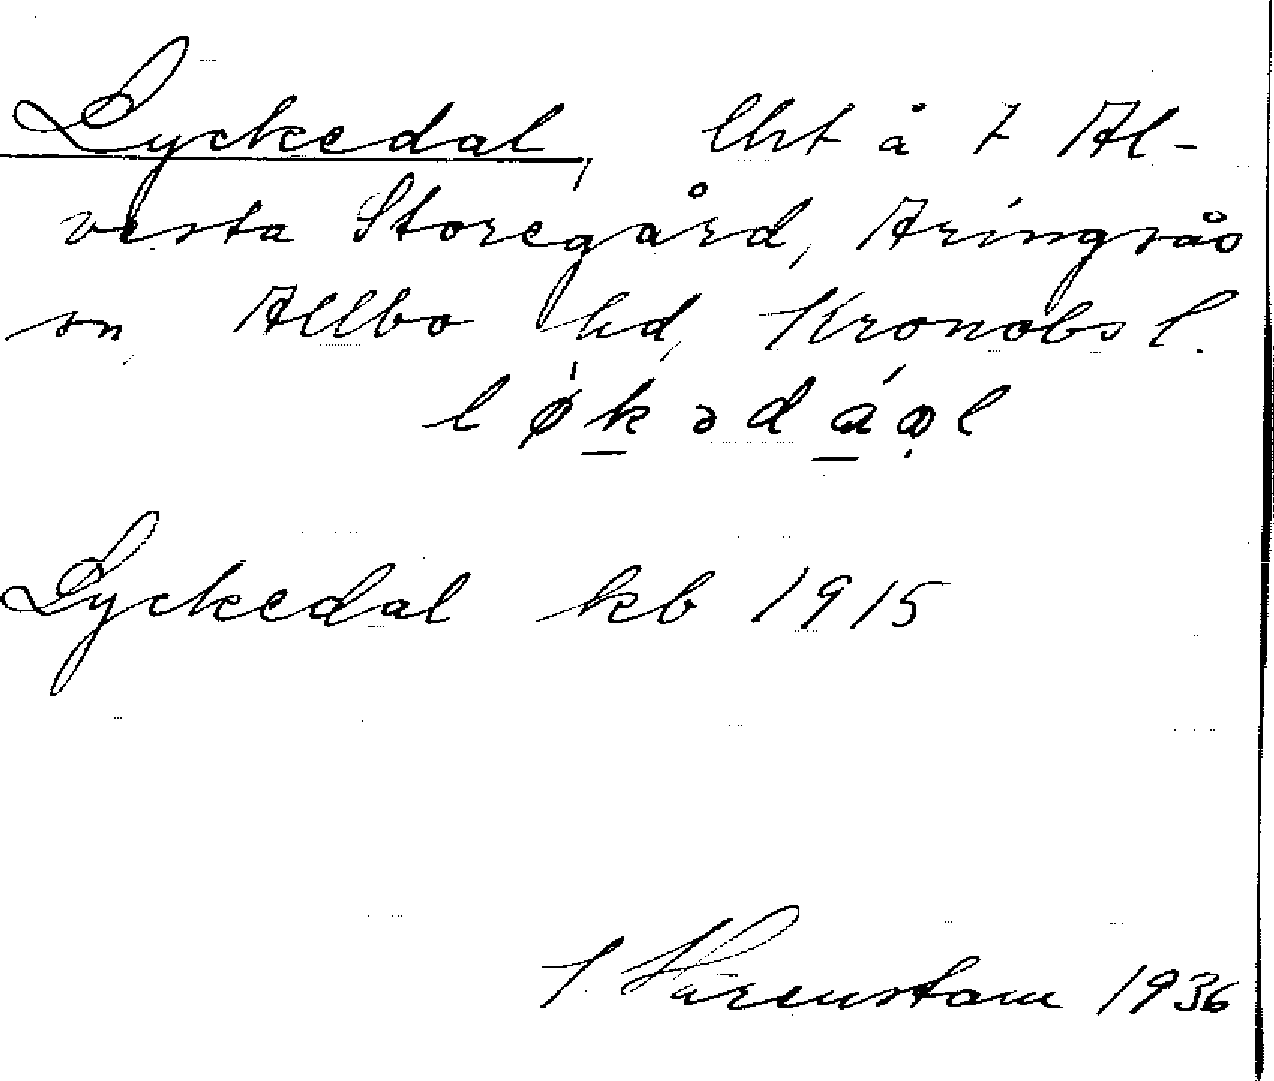 Lyckedal, lht å t Al-
vesta Storegård, Aringsås
sn, Allbo hd, Kronobs l.
løkədáo̤l
Lyckedal kb 1915
1936